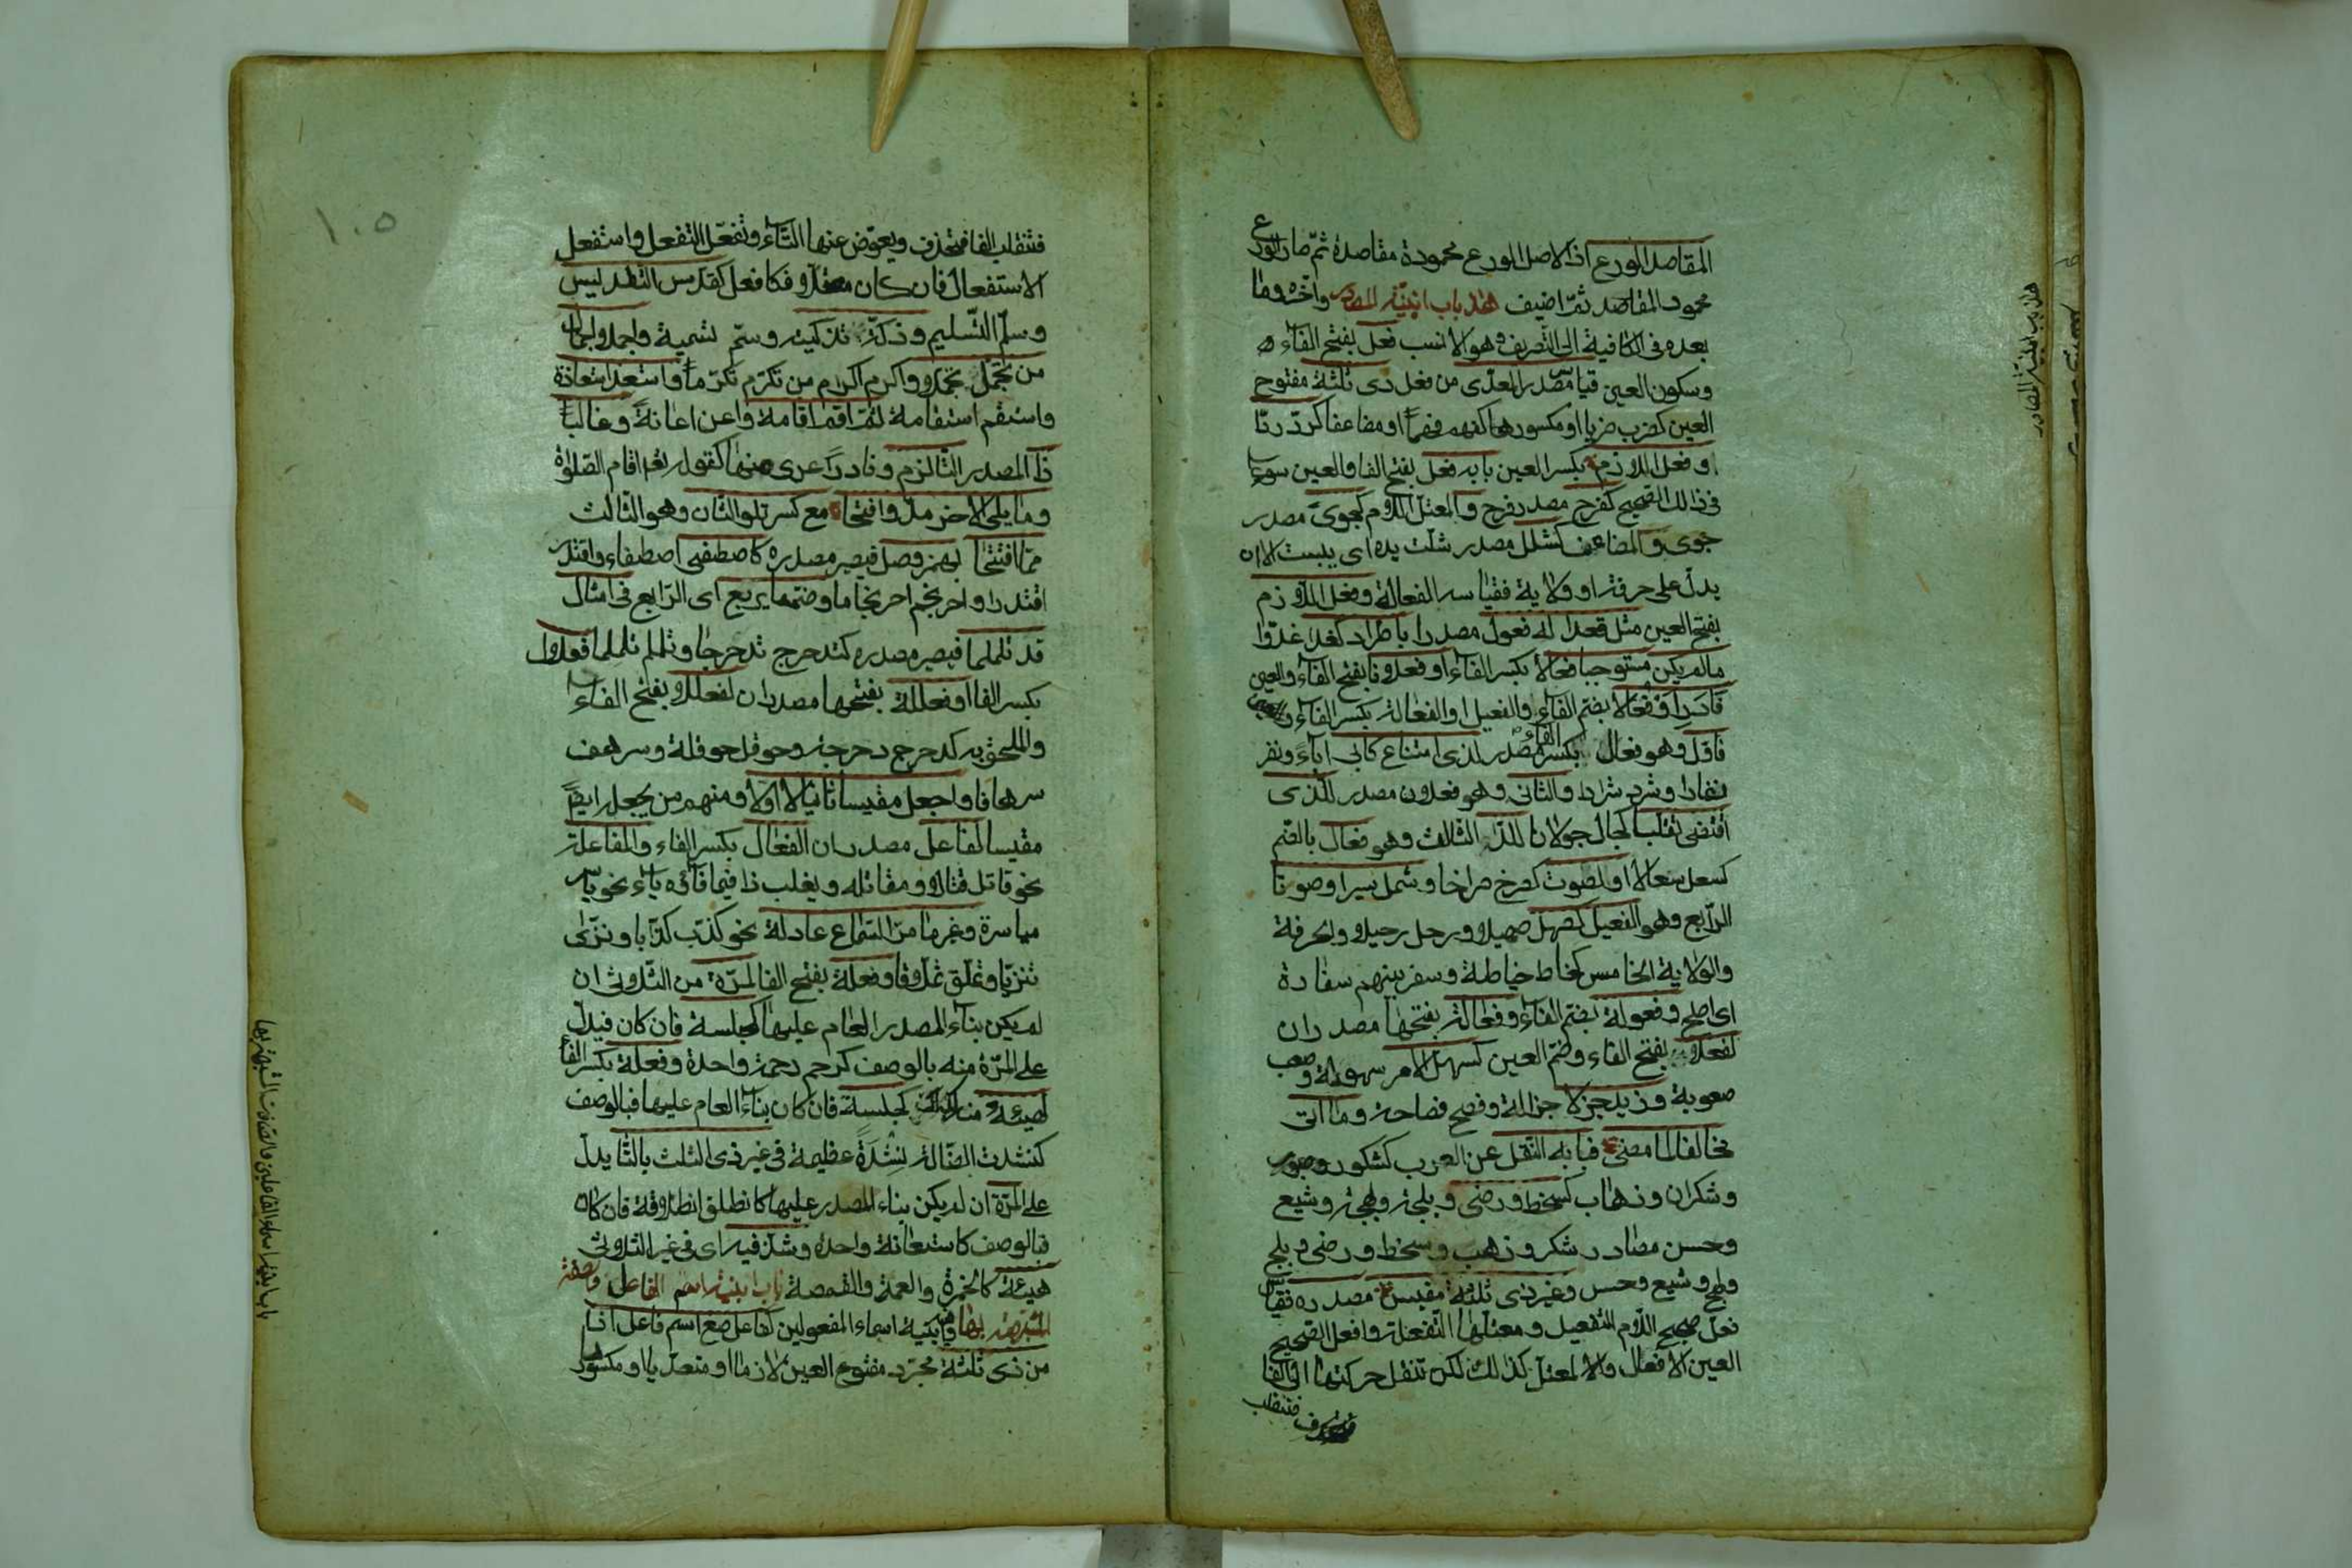 المقاصد الورع اذ الاصل الورع محمودة مقاصده ثم صار الورع
محمود المقاصد ثم اضيف هذا باب ابنية المصادر واخره وما
بعده فى الكافية الى التصريف وهو الانسب فعل بفتح الفاء
وسكون العين قياس مصدر المعدى من فعل ذى ثلثة مفتوح
العين كضرب ضربا او مكسورها كفهم فهما او مضاعفا كرد ردا
و فعل اللازم بكسر العين بابه فعل بفتح الفا والعين سواء
فى ذلك الصحيح كفرح مصدر فرح والمعتل اللام كجوى مصدر
جوى والمضاعف كشلل مصدر شلت يده اى يبست الا ان
يدل على حرفة او ولاية فقياسه الفعالة وفعل اللازم
بفتح العين مثل قعدا له فعول مصدرا باطراد كغدا غدوا
ما لم يكن مستوجبا فعالا بكسر الفاء او فعلانا بفتح الفاء والعين
فادر او فعالا بضم الفاء والفعيل او الفعالة بكسر الفاء والعين
فاول وهو فعال بكسر الفاء مصدر لذى امتناع كابى اباء ونفر
نفارا وشرد شرادا والثانى وهو فعلان مصدر للذى
اقتضى تقلبا كجال جولانا للداء الثالث وهو فعال بالضم
كسعل سعالا او لصوت كصرخ صراخا وشمل سيرا وصوتا
الرابع وهو الفعيل كصهل صهيلا ورحل رحيلا ولحرفة
والولاية الخامس كخاط خياطة وسفر بينهم سفارة
اى اصلح وفعولة بضم الفاء وفعالة بفتحها مصدران
لفعلا بفتح الفاء وضم العين كسهل الامر سهولة وصعب
صعوبة وزيد جزلا جزالة وفصح فصاحة وما اتى
مخالفا لما مضى فبابه النقل عن العرب كشكور وصور
وشكران وذهاب كسخط ورضى وبلجة وبهجة وشبع
وحسن مصادر شكر وذهب وسخط ورضى وبلج
وبهج وشبع وحسن وغير ذى ثلثة مقيس مصدره فقياس
فعل صحيح اللام التفعيل ومعتلها التفعلة وافعل الصحيح
العين الافعال والا لمعتل كذلك لكن تنقل حركتها الى الفا
فتنقلب
هذا باب ابنية المصادر
١٠٥
فتنقلب الفا فتحذف ويعوض عنها التاء وتفعل التفعل واستفعل
الاستفعال فان كان معتلا فكافعل كقدس التقديس
وسلم التسليم وزكه تزكية وسم تسمية واجملا اجمال
من تجمل تجملا واكرم اكرام من تكرم تكرما واستعذ استعاذة
واستقم استقامة ثم اقم اقامة واعن اعانة وغالبا
ذا المصدر التا لزم ونادرا عرى منها كقوله تعم اقام الصلوة
وما يلى الاخر مد وافتحا مع كسر تلو الثان وهو الثالث
مما افتتحا بهمز وصل فيصير مصدره كاصطفى اصطفاء واقتدر
اقتدرا واحرنجم احرنجاما وضم ما يربع اى الرابع فى امثال
قد تلملما فيصير مصدره كتدحرج تدحرجا وتلملم تلملما فعلال
بكسر الفا او فعللة بفتحها مصدران لفعللا بفتح الفاء
والملحق به كدحرج دحرجة وحوقل حوقلة وسرهف
سرهافا واجعل مقيسا ثانيا لا اولا ومنهم من يجعله ايضا
مقيسا لفاعل مصدران الفعال بكسر الفاء والمفاعلة
نحو قاتل قتالا ومقاتلة ويغلب ذا فيما فاؤه ياء نحو ياسر
مياسرة وغير ما مر السماع عادلة نحو كذب كذابا ونزى
تنزيا وتملق تملاقا وفعلة بفتح الفا لمرة من الثلاثى ان
لم يكن بناء المصدر العام عليها كجلسة فان كان فيدل
على المرة منه بالوصف كرحم رحمة واحدة وفعلة بكسر الفاء
لهيئة منه كجلسة فان كان بناء العام عليها فبالوصف
كنشدت الضالة نشدة عظيمة فى غير ذى الثلث بالتا يدل
على المرة ان لم يكن بناء المصدر عليها كانطلق انطلاقة فان كان
فبالوصف كاستعانة واحدة وشذ فيه اى فى غير الثلاثى
هيئة كالخمرة والعمة والقمصة باب ابنية اسم الفاعل والصفة
المشبهة بها وفيه ابنية اسماء المفعولين كفاعل صغ اسم فاعل اذا
من ذى ثلثة مجرد مفتوح العين لازما او متعديا او مكسورها
باب ابنية اسماء الفاعلين والصفات المشبهة بها